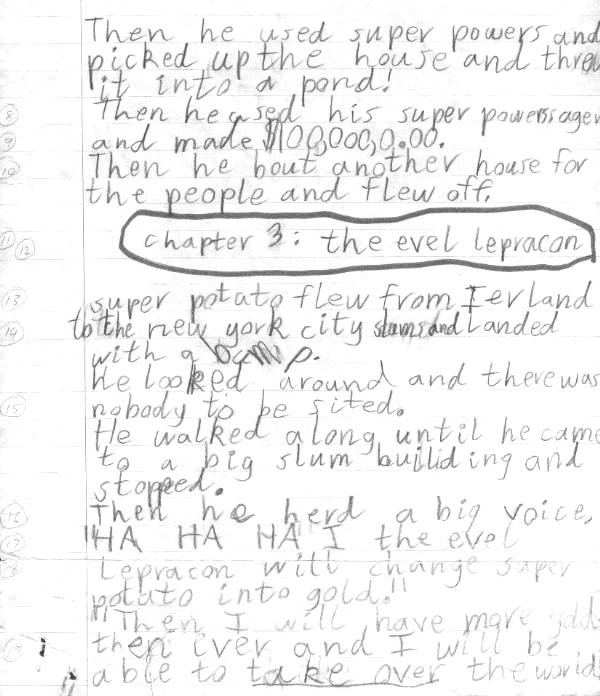 Then he used super powers and
picked up the house and threw
it into a pond!
8 Then he ased his super powers agen
9 and made $100,000,0.00.
10 Then he bout another house for
the people and flew off.
11 12 chapter 3: the evel lepracon
13 super potato flew from Ierland
14 to the new york city slums and landed
with a bump.
he looked around and there was
15 nobody to be sited.
He walked along until he came
to a big slum builiding and
stopped.
16 Then he herd a big voice,
17 "HA HA HA I the evel
18 Lepracon will change super
potato into gold."
"Then I will have more gold
19 then ever and I will be
able to take over the world